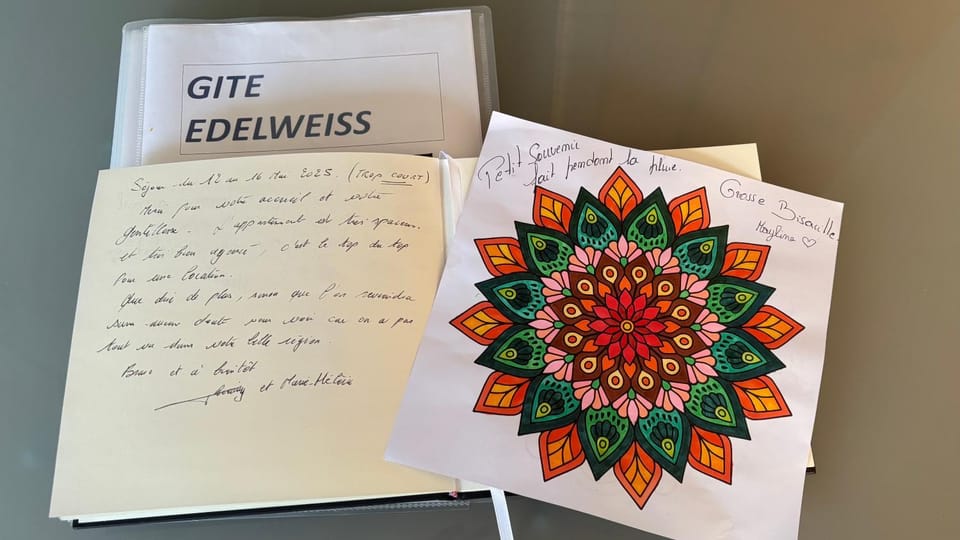 GITE
EDELWEISS
Séjour du 12 au 16 Mai 2025. (TROP COURT)
Merci pour votre accueil et votre
gentillesse. L'appartement est très spacieux.
et très bien agencé, c'est le top du top
pour une location.
Que dire de plus, sinon que l'on reviendra
sans aucun doute vous voir car on a pas
tout vu dans votre belle région.
Bravo et à bientôt
et Marie-Hélène
Petit Souvenir
fait pendant la pluie.
Grosse Bisouille
Mayline ♡